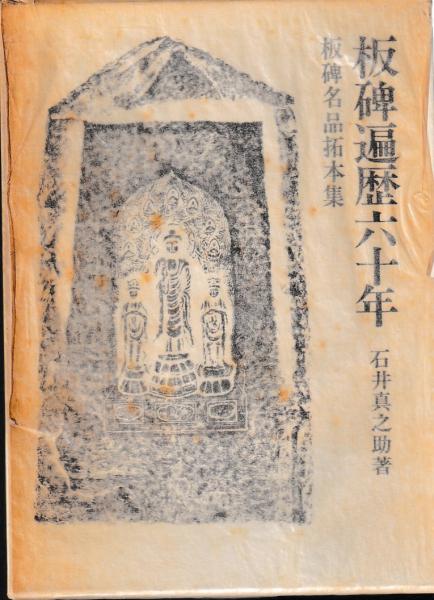 板碑遍歴六十年
板碑名品拓本集
石井真之助著